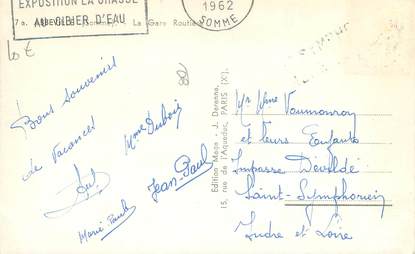 EXPOSITION LA CHASSE
AU GIBIER D'EAU
1962
SOMME
7a. ABBEVILLE (Somme) - La Gare Routière
10 €
Bons Souvenirs
de Vacances
Mme Dubois
Jean-Paul
Marie Paule
Edition Mage - J. Derenne,
15, rue de l'Aqueduc, PARIS (X).
Mr Mme Vaumouron
et leurs Enfants
Impasse Déolde
Saint-Symphorien
Indre et Loire